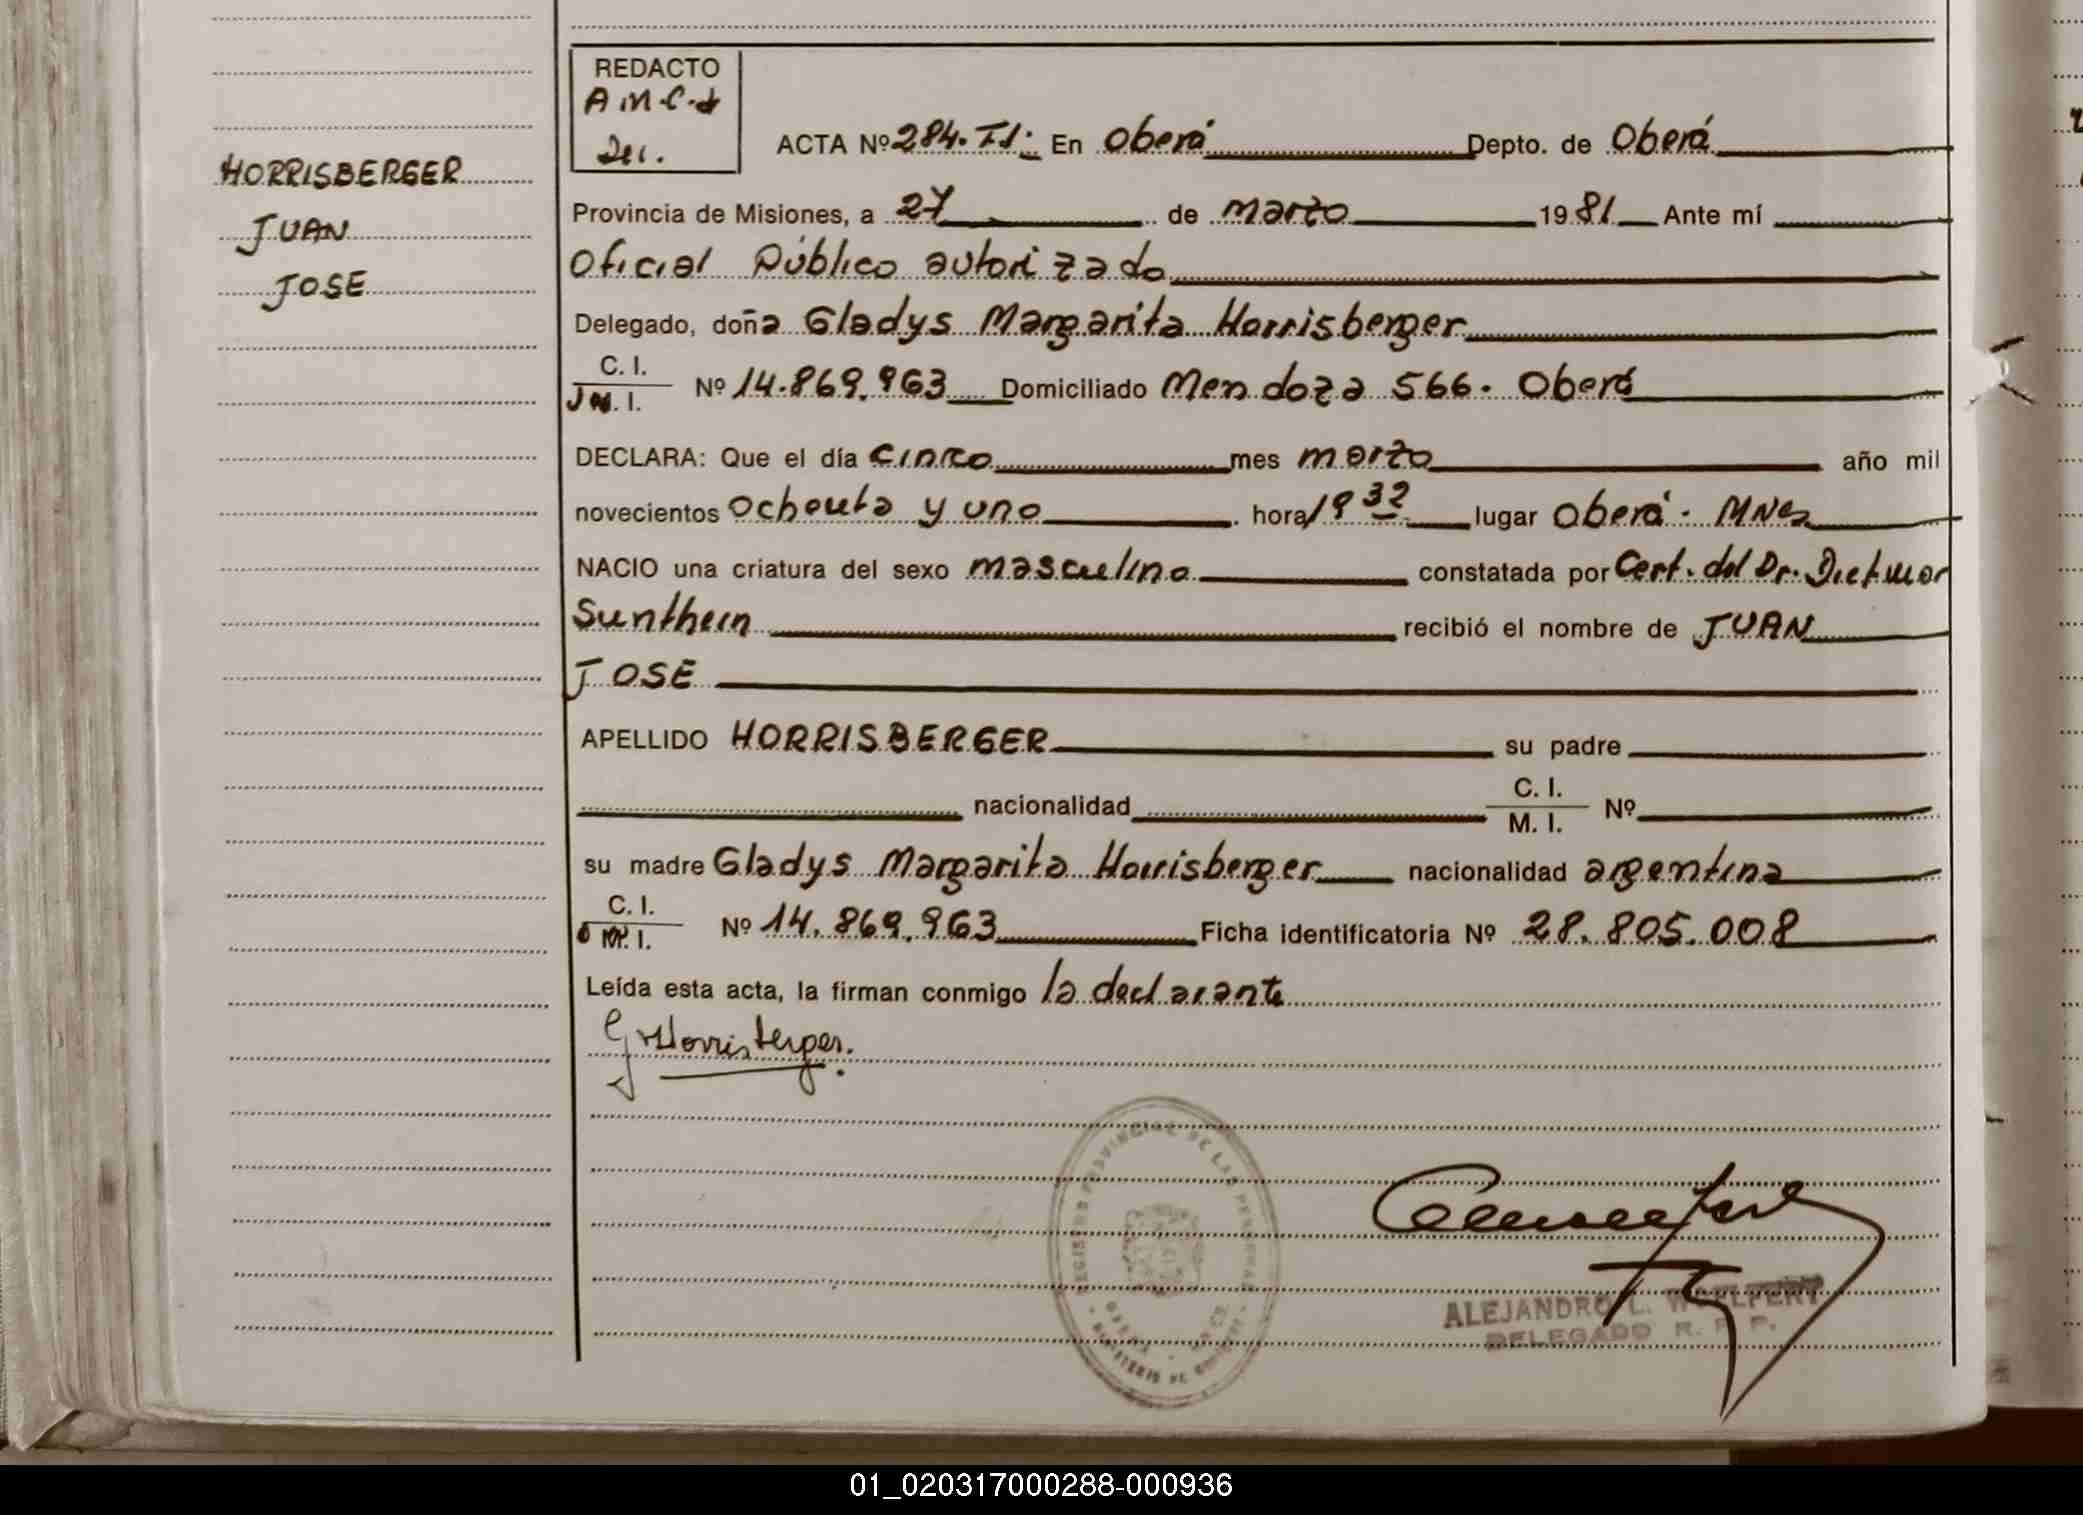 REDACTO
A.M.C.d
Dec.
HORRISBERGER
JUAN
JOSE
ACTA Nº 284. T1. En Oberá Depto. de Oberá
Provincia de Misiones, a 27 de marzo 1981 Ante mí
Oficial Público autorizado
Delegado, doña Gladys Margarita Horrisberger
C. I.
I. Nº 14.869.963 Domiciliado Mendoza 566. Oberá
DECLARA: Que el día cinco mes marzo año mil
novecientos ochenta y uno hora 19 32 lugar Oberá. Mnes
NACIO una criatura del sexo masculino constatada por Cert. del Dr. Dietmar
Sunthein recibió el nombre de JUAN
JOSE
APELLIDO HORRISBERGER su padre
nacionalidad C. I.
M. I. Nº
su madre Gladys Margarita Horrisberger nacionalidad argentina
C. I.
I. Nº 14.869.963 Ficha identificatoria Nº 28.805.008
Leída esta acta, la firman conmigo la declarante
GMHorrisberger.
REGISTRO PROVINCIAL DE LAS PERSONAS
OBERA
MINISTERIO DE GOBIERNO
ALEJANDRO L. WOELFERT
DELEGADO R. P. P.
01_020317000288-000936